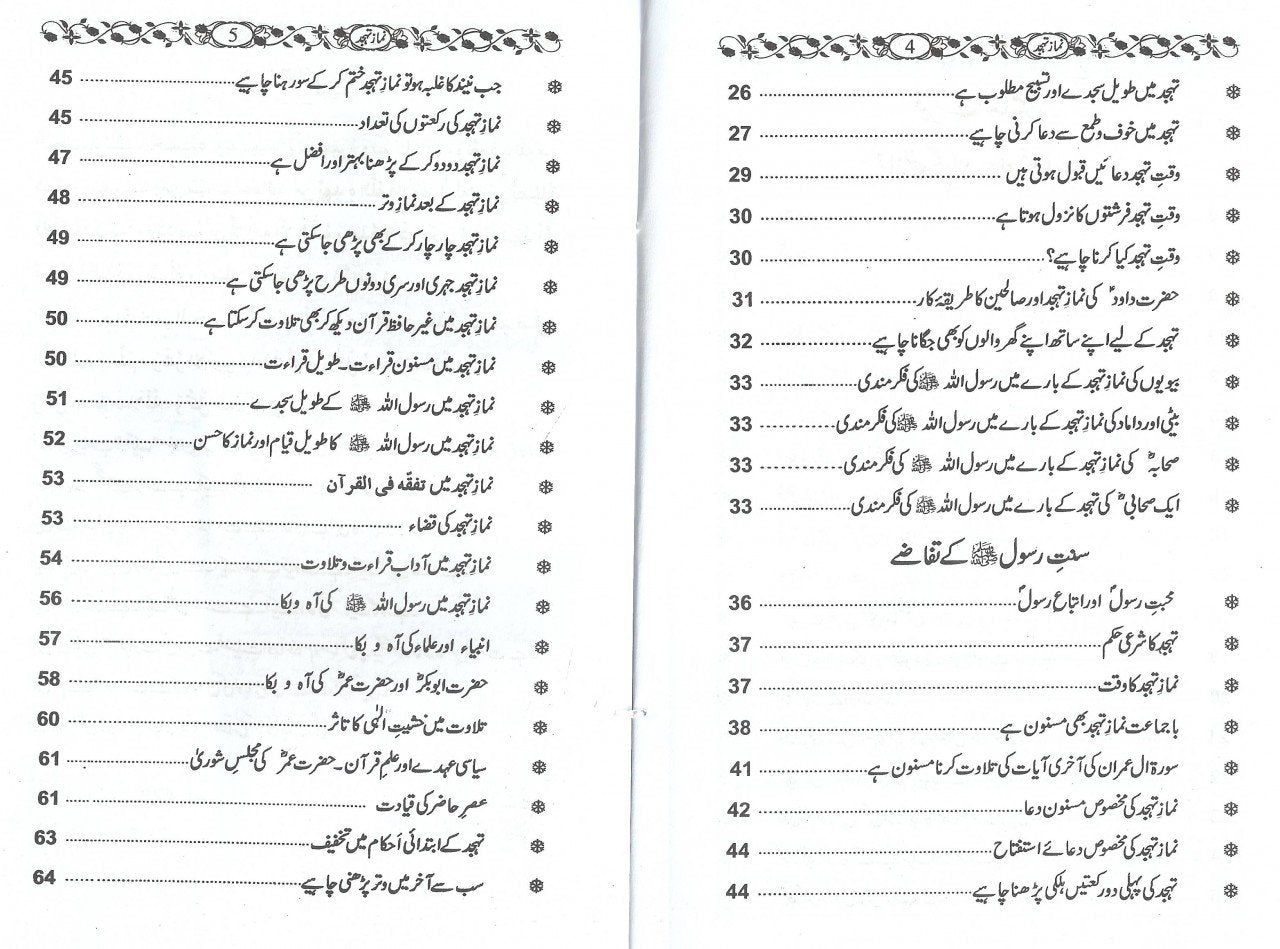 4 نمازِ تہجد
تہجد میں طویل سجدے اور تسبیح مطلوب ہے 26
تہجد میں خوف و طمع سے دعا کرنی چاہیے 27
وقتِ تہجد دعائیں قبول ہوتی ہیں 29
وقتِ تہجد فرشتوں کا نزول ہوتا ہے 30
وقتِ تہجد کیا کرنا چاہیے؟ 30
حضرت داودؑ کی نمازِ تہجد اور صالحین کا طریقۂ کار 31
تہجد کے لیے اپنے ساتھ اپنے گھر والوں کو بھی جگانا چاہیے 32
بیویوں کی نمازِ تہجد کے بارے میں رسول اللہ ﷺ کی فکر مندی 33
بیٹی اور داماد کی نمازِ تہجد کے بارے میں رسول اللہ ﷺ کی فکر مندی 33
صحابہؓ کی نمازِ تہجد کے بارے میں رسول اللہ ﷺ کی فکر مندی 33
ایک صحابیؓ کی تہجد کے بارے میں رسول اللہ ﷺ کی فکر مندی 33
سنتِ رسول ﷺ کے تقاضے
محبتِ رسولؐ اور اتباعِ رسولؐ 36
تہجد کا شرعی حکم 37
نمازِ تہجد کا وقت 37
باجماعت نمازِ تہجد بھی مسنون ہے 38
سورۃ ال عمران کی آخری آیات کی تلاوت کرنا مسنون ہے 41
نمازِ تہجد کی مخصوص مسنون دعا 42
نمازِ تہجد کی مخصوص دعائے استفتاح 44
تہجد کی پہلی دو رکعتیں ہلکی پڑھنا چاہیے 44
5 نمازِ تہجد
جب نیند کا غلبہ ہو تو نمازِ تہجد ختم کر کے سو رہنا چاہیے 45
نمازِ تہجد کی رکعتوں کی تعداد 45
نمازِ تہجد دو دو کر کے پڑھنا بہتر اور افضل ہے 47
نمازِ تہجد کے بعد نمازِ وتر 48
نمازِ تہجد چار چار کر کے بھی پڑھی جا سکتی ہے 49
نمازِ تہجد جہری اور سری دونوں طرح پڑھی جا سکتی ہے 49
نمازِ تہجد میں غیر حافظ قرآن دیکھ کر بھی تلاوت کر سکتا ہے 50
نمازِ تہجد میں مسنون قراءت۔ طویل قراءت 50
نمازِ تہجد میں رسول اللہ ﷺ کے طویل سجدے 51
نمازِ تہجد میں رسول اللہ ﷺ کا طویل قیام اور نماز کا حسن 52
نمازِ تہجد میں تفقّه فی القرآن 53
نمازِ تہجد کی قضاء 53
نمازِ تہجد میں آدابِ قراءت و تلاوت 54
نمازِ تہجد میں رسول اللہ ﷺ کی آہ وبکا 56
انبیاء اور علماء کی آہ و بکا 57
حضرت ابوبکرؓ اور حضرت عمرؓ کی آہ و بکا 58
تلاوت میں خشیتِ الٰہی کا تاثر 60
سیاسی عہدے اور علمِ قرآن۔ حضرت عمرؓ کی مجلسِ شوریٰ 61
عصرِ حاضر کی قیادت 61
تہجد کے ابتدائی اَحکام میں تخفیف 63
سب سے آخر میں وتر پڑھنی چاہیے 64